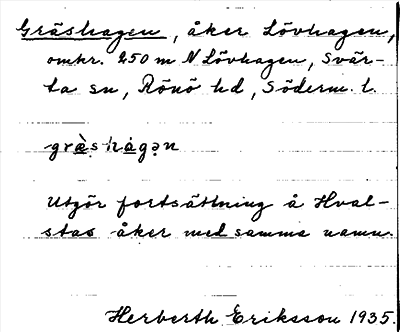 Gräshagen, åker Lövhagen,
omkr. 250 m N Lövhagen, Svär-
ta sn, Rönö hd, Söderm. l.
grä̀s hàgən
Utgör fortsättning å Hval-
stas åker med samma namn.
Herberth Eriksson 1935.